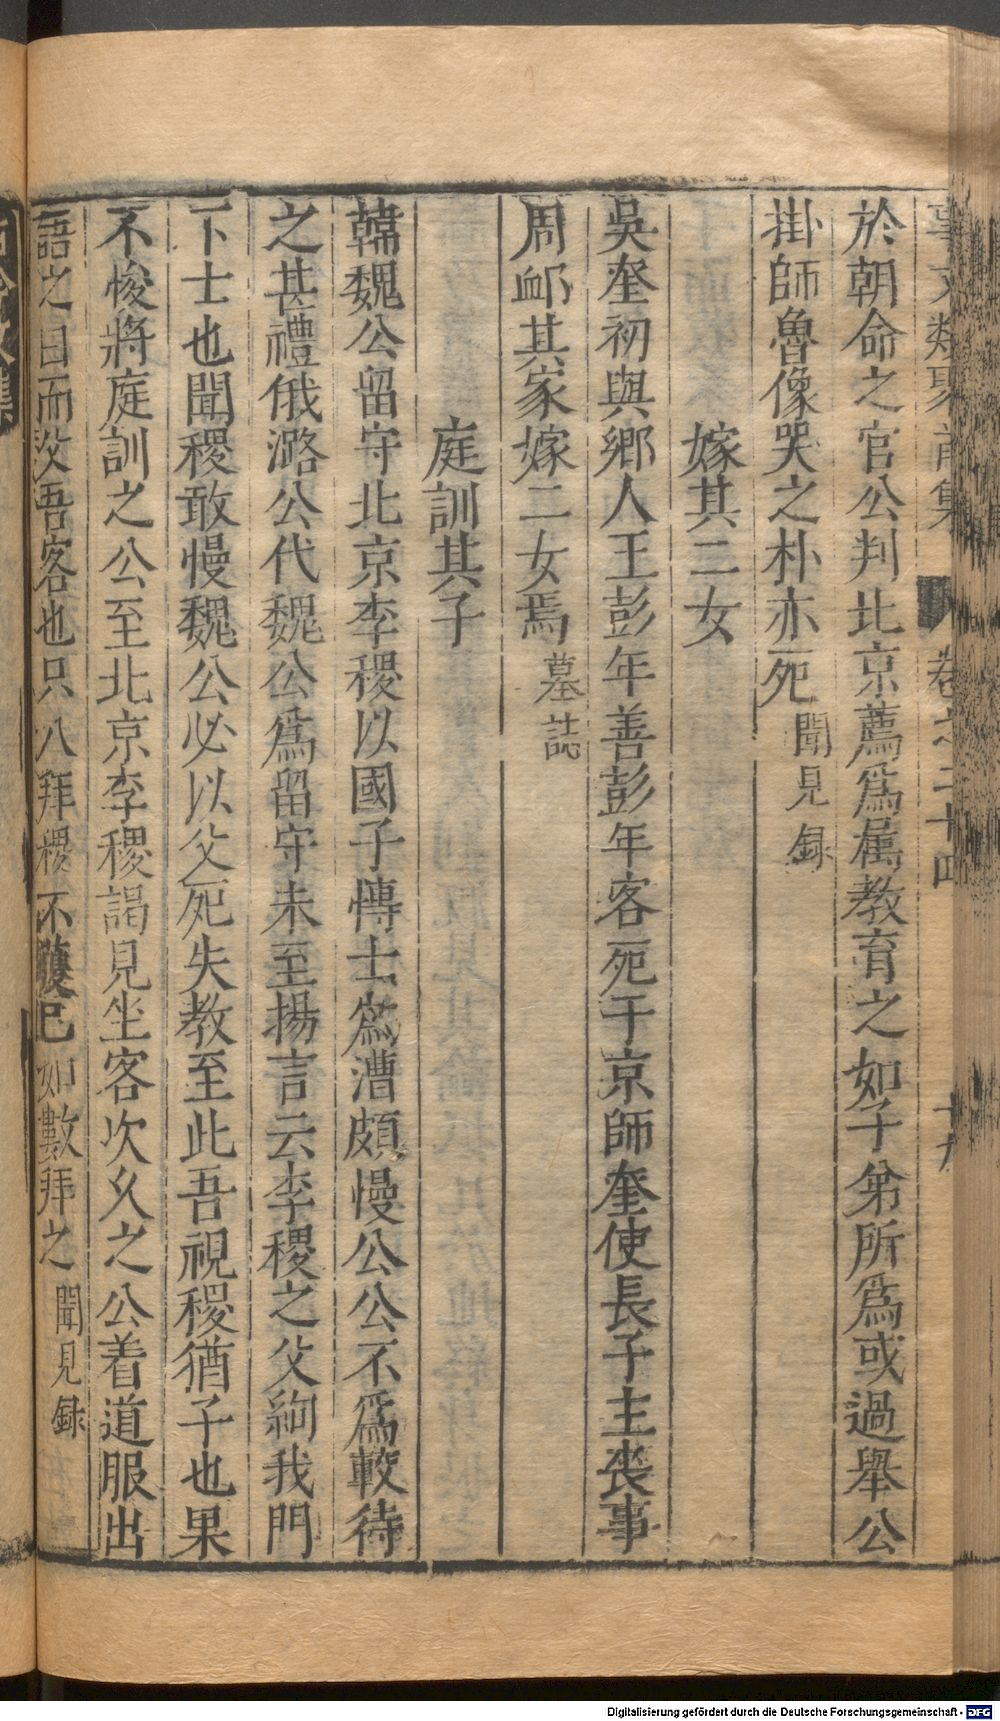 事文類聚前集 卷之二十四 十九
於朝命之官公判北京薦爲属教育之如子弟所爲或過舉公
掛師魯像哭之朴亦死 聞見録
嫁其二女
吳奎初與鄉人王彭年善彭年客死于京師奎使長子主喪事
周卹其家嫁二女焉 墓誌
庭訓其子
韓魏公留守北京李稷以國子博士爲漕頗慢公公不爲較待
之甚禮俄潞公代魏公爲留守未至揚言云李稷之父絢我門
下士也聞稷敢慢魏公必以父死失教至此吾視稷猶子也果
不悛將庭訓之公至北京李稷謁見坐客次久之公着道服出
語之曰而父吾客也只八拜稷不獲已如數拜之 聞見録
Digitalisierung gefördert durch die Deutsche Forschungsgemeinschaft - DFG